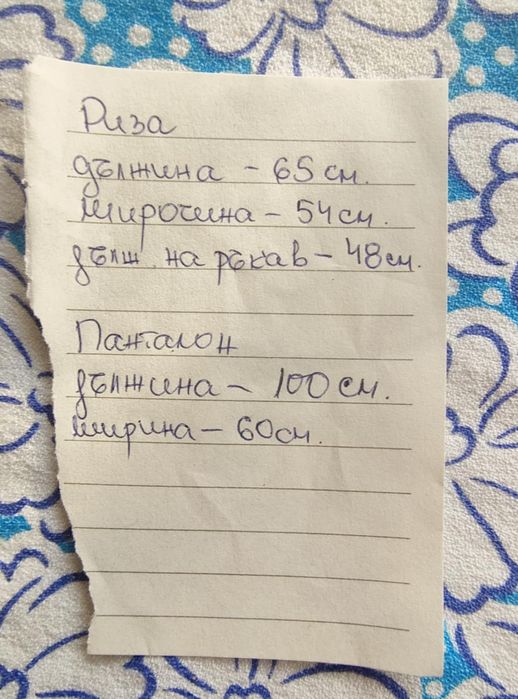 Риза
дължина - 65 см.
широчина - 54 см.
дълж. на ръкав - 48 см.
Панталон
дължина - 100 см.
ширина - 60 см.